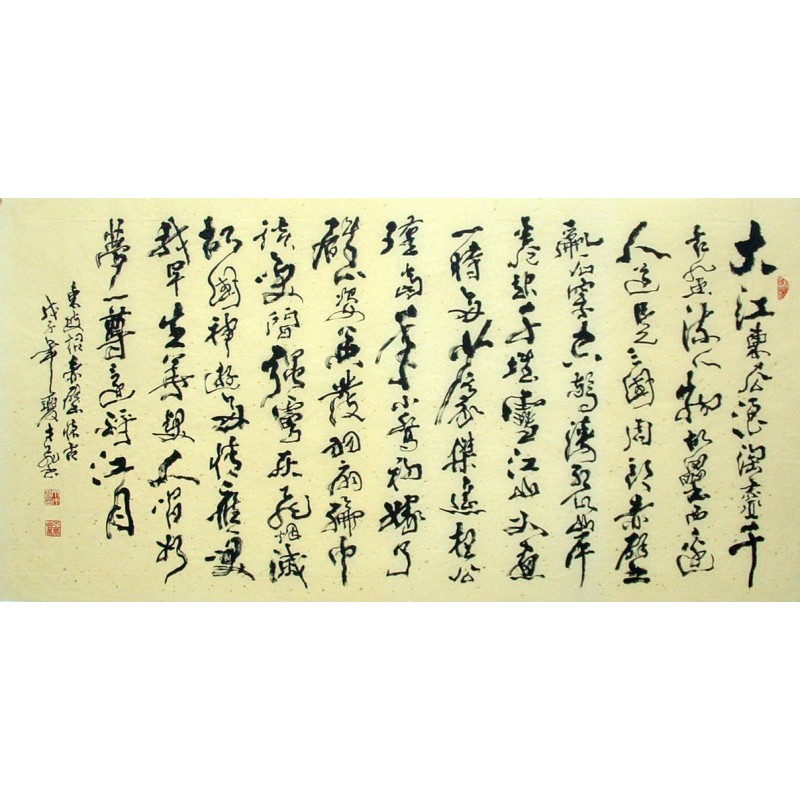 大江東去浪淘盡千
古風流人物故壘西邊
人道是三國周郎赤壁
亂石穿空驚濤岸
卷起千堆雪江山如畫
一時多少豪傑遙想公
瑾當年小喬初嫁了
雄姿英發羽扇綸巾
談笑間強虜灰飛烟滅
故國神遊多情應笑
我早生華髮人間如
夢一尊還酹江月
東坡詞赤壁懷古
戊子年夏